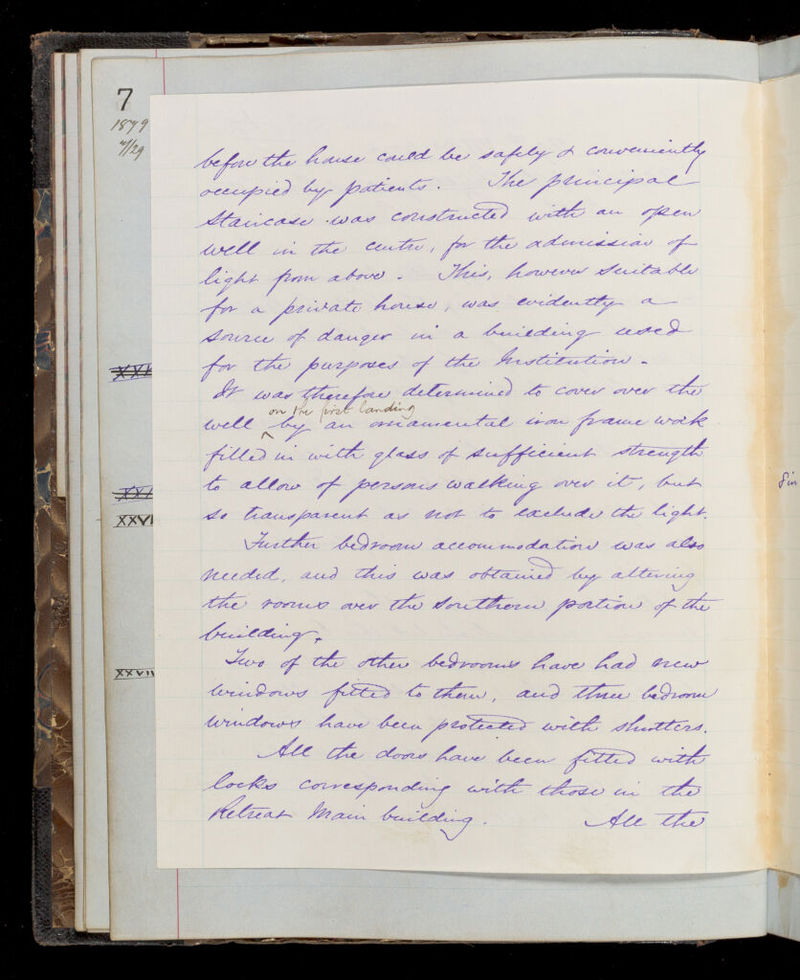 7
1879
before the house could be safely & conveniently
occupied by patients. The principal
staircase was constructed with an open
well in the centre, for the admission of
light from above. This, however suitable
for a private house, was evidently a
source of danger in a building used
for the purposes of the Institution.
It was therefore determined to cover over the
on the first landing
well by an ornamental iron frame work
filled in with glass of sufficient strength
to allow of persons walking over it, but
so transparent as not to exclude the light.
Further bedroom accommodation was also
needed, and this was obtained by altering
the rooms over the southern portion of the
building.
Two of the other bedrooms have had new
windows fitted to them, and three bedroom
windows have been protected with shutters.
All the doors have been fitted with
locks corresponding with those in the
Retreat Main building. All the
XXVI
XXVII